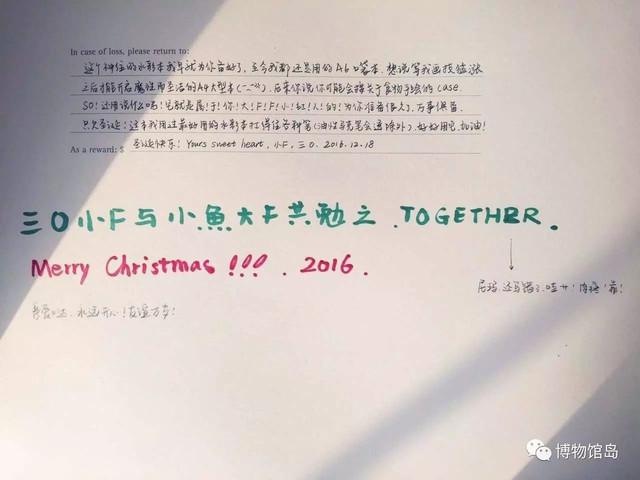 In case of loss, please return to:
这个神往的水彩本我早就为你备好了，至今我都还是用的A6口袋本，想说等我画技猛涨
之后才能开启魔性而圣洁的A4大型本(一.一)，后来你说你可能会接关于食物手绘的case.
SO！还用说什么呢！它就是属！于！你！大！F！F！小！红！人！的！为你准备很久了，万事俱备
只欠圣诞：这本我用过最好用的水彩本扛得住各种笔(油性马克笔会透除外)，好好用它，加油！
As a reward: $ 圣诞快乐！Yours sweet heart，小F，三O. 2016.12.18
三O小F与小魚大F共勉之.TOGETHER.
Merry Christmas !!! . 2016.
还写错了
永远开心！友谊万岁！
博物馆岛